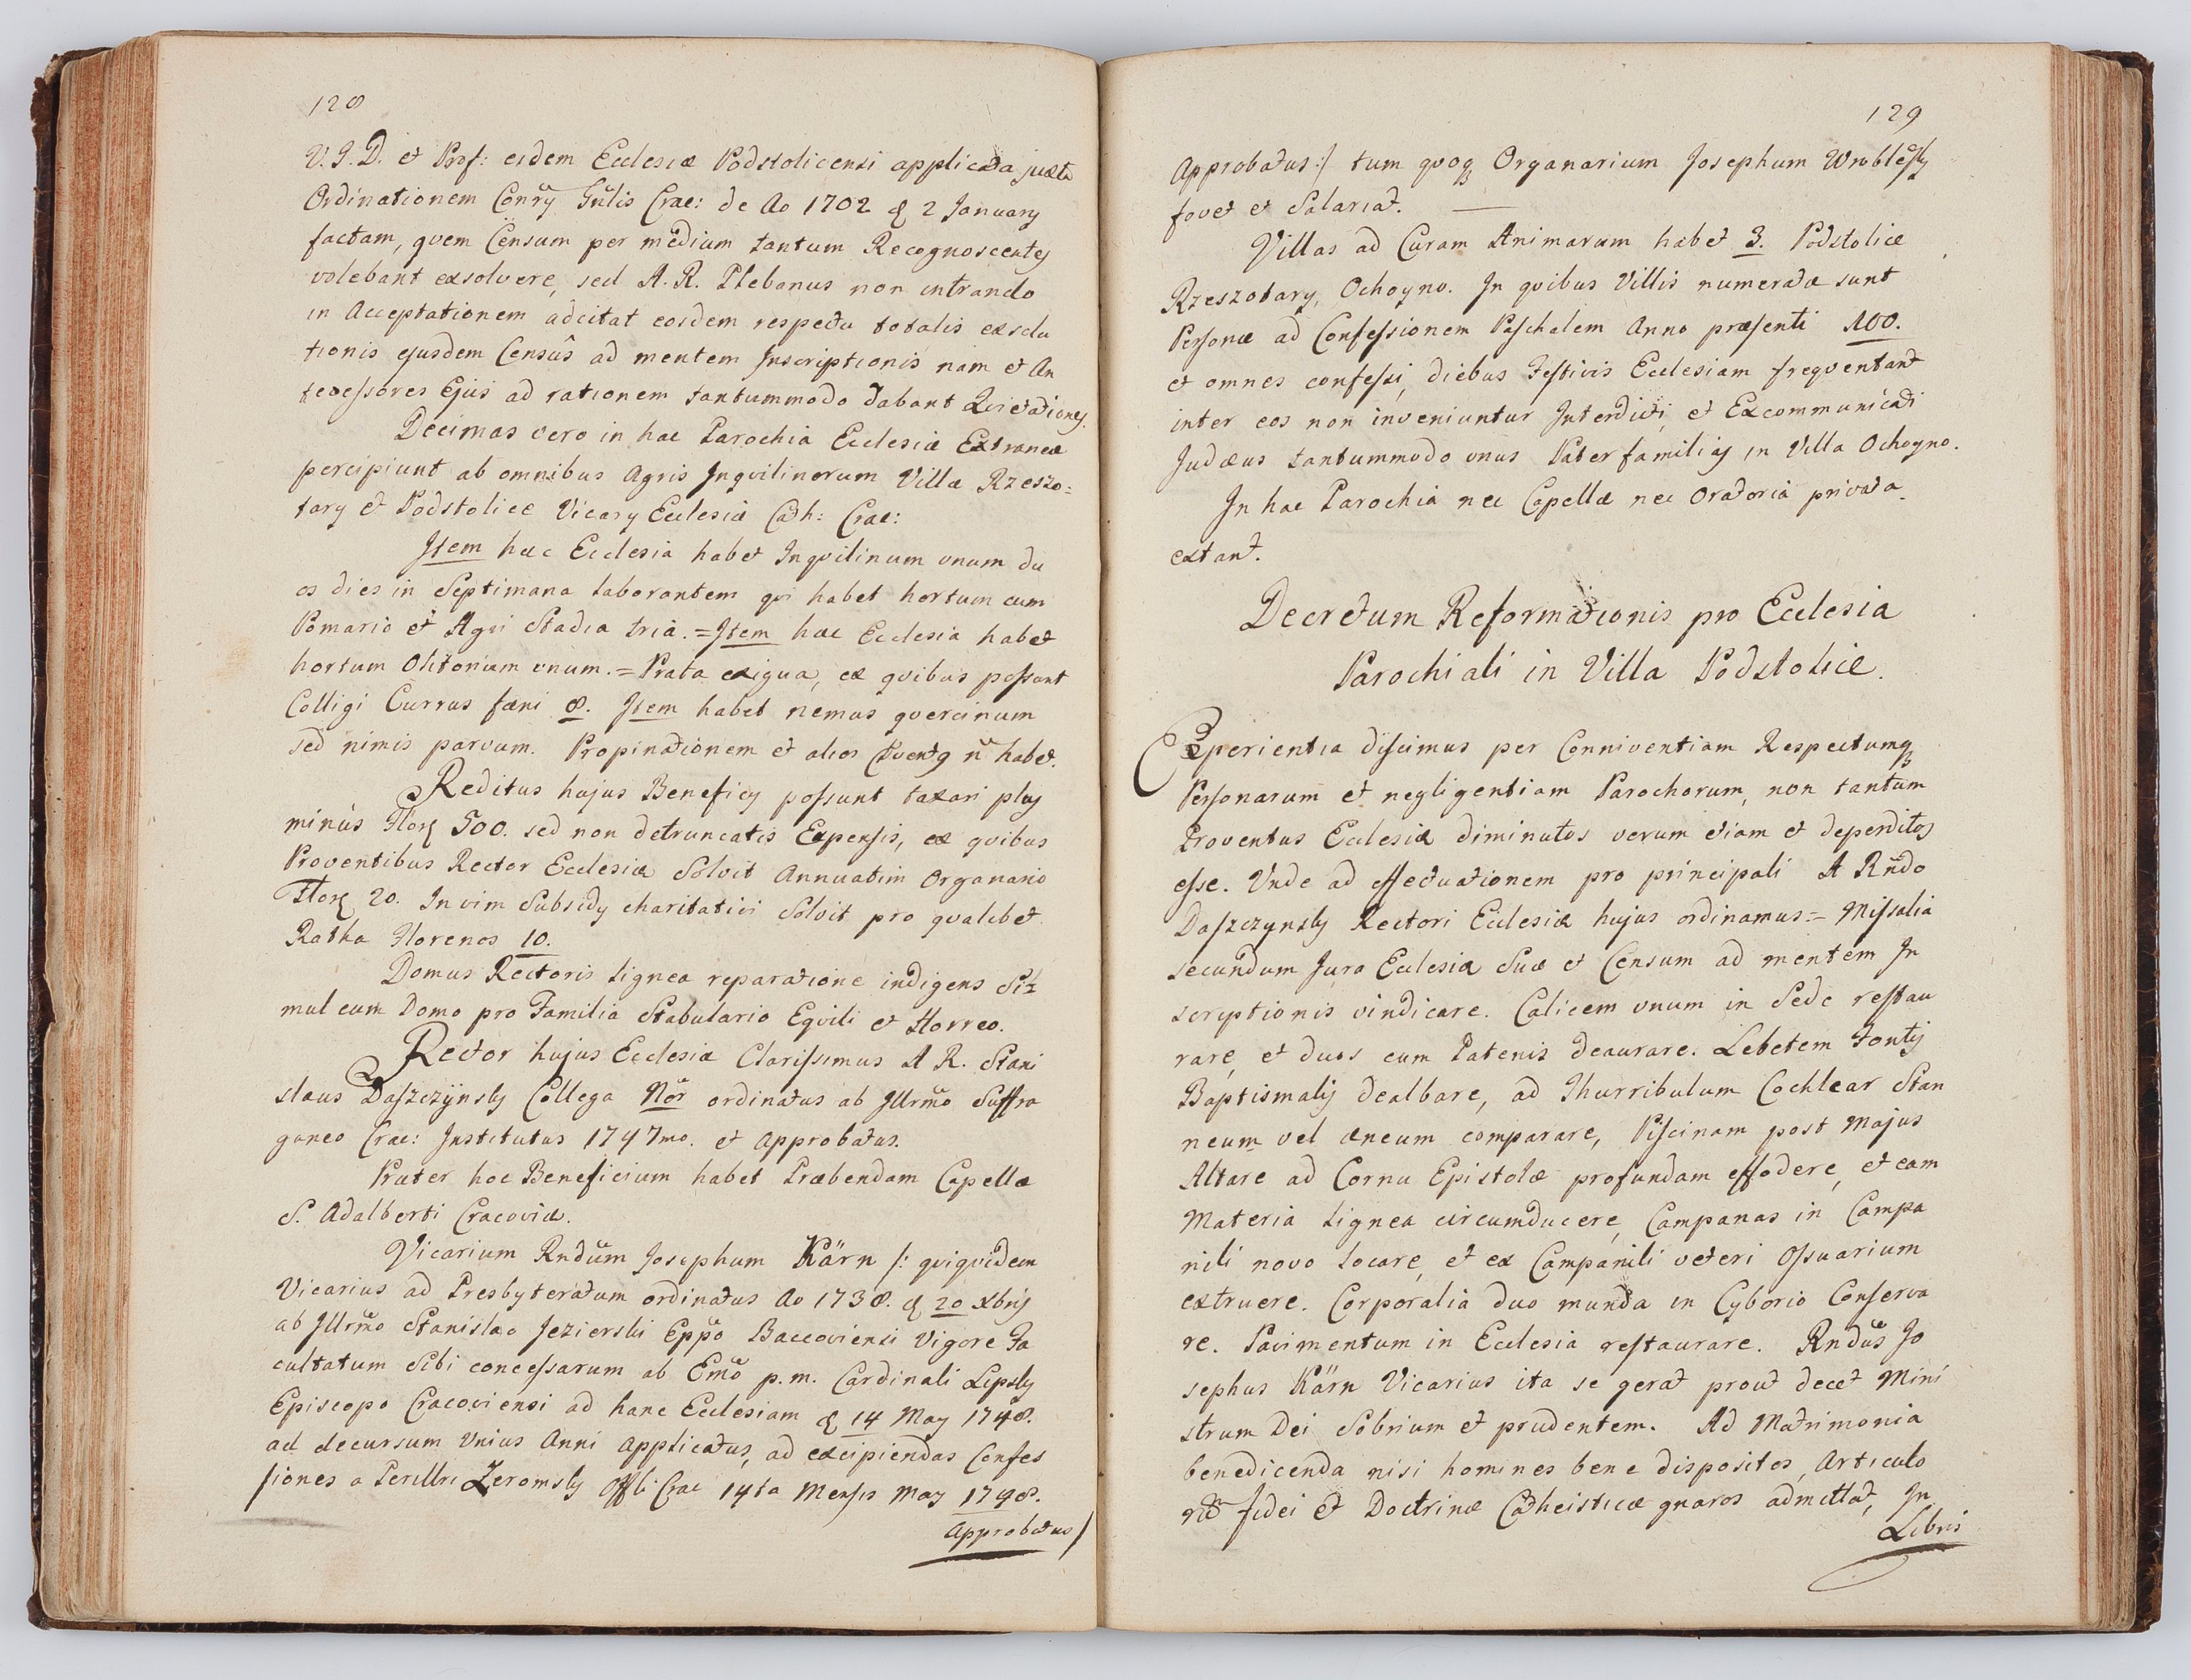 128
V. J. D. et Prof: eidem Ecclesiæ Podstolicensi applicata juxta
Ordinationem Conry Gnlis Crac: de Ao 1702 d 2 January
factam, quem Censum per medium tantum Recognoscentes
volebant exsolvere, sed A. R. Plebanus non intrando
in Acceptationem adcitat eosdem respectu totalis exsolu
tionis ejusdem Censûs ad mentem Inscriptionis nam et An
tecessores Ejus ad rationem tantummodo dabant Quietationes.
Decimas vero in hac Parochia Ecclesiæ Extraneæ
percipiunt ab omnibus Agris Inqvilinorum Villæ Rzeszo=
tary et Podstolice Vicary Ecclesiæ Cath: Crac:
Item hæc Ecclesia habet Inqvilinum unum du
os dies in Septimana laborantem qvi habet hortum cum
Pomario et Agri Stadia tria. = Item hæc Ecclesia habet
hortum Olitorium unum. = Prata exigua, ex qvibus possunt
Colligi Currus fæni 8. Item habet nemus qvercinum
sed nimis parvum. Propinationem et alios Prventus n habet.
Reditus hujus Beneficy possunt taxari plus
minùs Flor 500. sed non detruncatis Expensis, ex qvibus
Proventibus Rector Ecclesiæ Solvit Annuatim Organario
Flor 20. In vim Subsidy charitativi Solvit pro qvalibet
Ratha Florenos 10.
Domus Rectoris Lignea reparatione indigens Si=
mul cum Domo pro Familia Stabulario Eqvili et Horreo.
Rector hujus Ecclesiæ Clarissimus A R. Stani
slaus Daszczÿnsky Collega Nor ordinatus ab Illrmo Suffra
ganeo Crac: Institutus 1747mo. et Approbatus.
Præter hoc Beneficium habet Præbendam Capellæ
S. Adalberti Cracoviæ.
Vicarium Rndum Josephum Kärn /: qviqvidem
Vicarius ad Presbyteratum ordinatus Ao 1738. d 20 Xbris
ab Illrmo Stanislao Jezierski Eppo Baccoviensi Vigore Fa
cultatum Sibi concessarum ab Emo p. m. Cardinali Lipsky
Episcopo Cracoviensi ad hanc Ecclesiam d 14 May 1748.
ad decursum Unius Anni Applicatus, ad excipiendas Confes
siones a Perillri Żeromsky Offli Crac 14ta Mensis May 1748.
Approbatus /
129
Approbatus :/ tum qvoq Organarium Josephum Wroblesky
fovet et Salariat.
Villas ad Curam Animarum habet 3. Podstolice
Rzeszotary, Ochoyno. In qvibus Villis numeratæ sunt
Personæ ad Confessionem Paschalem Anno præsenti 400.
et omnes confessi, diebus Festivis Ecclesiam freqventant
inter eos non inveniuntur Interdicti, et Excommunicati
Judæus tantummodo unus Pater familias in Villa Ochoyno.
In hac Parochia nec Capellæ nec Oratoria privata
extant.
Decretum Reformationis pro Ecclesia
Parochiali in Villa Podstolice.
Experientia discimus per Conniventiam Respectumq
Personarum et negligentiam Parochorum, non tantum
Proventus Ecclesiæ diminutos verum etiam et deperditos
esse. Unde ad effectuationem pro principali A Rndo
Daszczynsky Rectori Ecclesiæ hujus ordinamus = Missalia
secundum Jura Ecclesiæ Suæ et Censum ad mentem In
scriptionis vindicare. Calicem unum in Sede restau
rare, et duos cum Patenis deaurare. Lebetem Fontis
Baptismalis dealbare, ad Thurribulum Cochlear Stan
neum vel æneum comparare, Piscinam post Majus
Altare ad Cornu Epistolæ profundam effodere, et eam
Materia Lignea circumducere, Campanas in Campa
nili novo Locare, et ex Campanili veteri Ossuarium
extruere. Corporalia duo munda in Cyborio Conserva
re. Pavimentum in Ecclesia restaurare. Rndus Jo
sephus Kärn Vicarius ita se gerat prout decet Mini
strum Dei Sobrium et prudentem. Ad Matrimonia
benedicenda nisi homines bene dispositos, Articulo
rum fidei et Doctrinæ Catheisticæ gnaros admittat, In
Libris